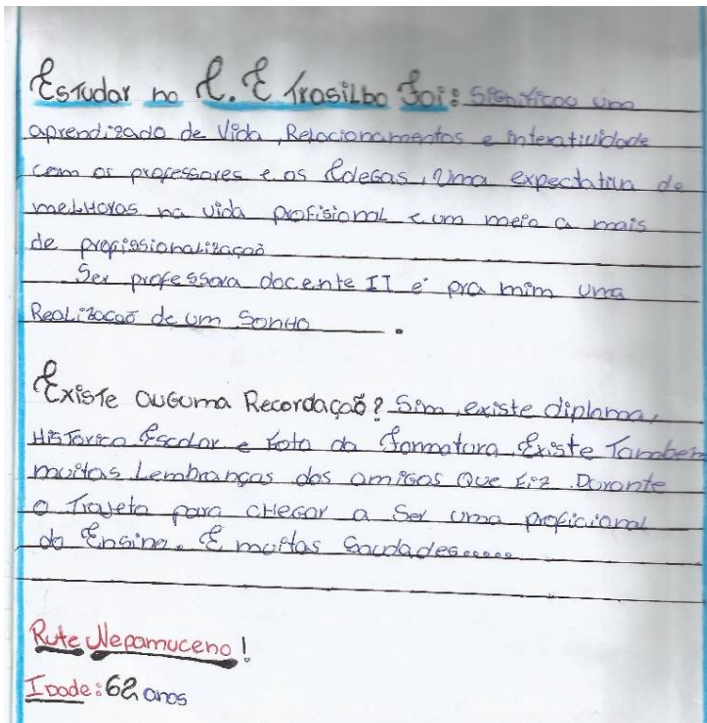 Estudar no C. E Trasilbo Foi: Significou uma
aprendizado de Vida, Relacionamentos e interatividade
com os professores e os Colegas, Uma expectativa de
meLHoras na vida profisional < um meio a mais
de profissionalização
Ser professora docente II e' pra mim uma
Realização de um SonHo .
Existe auguma Recordação? Sim, existe diploma,
HisTorico Escolar e Foto da Formatura, Existe Tambem
muitas Lembranças dos amigos Que Fiz Durante
o Trajeto para cHegar a Ser uma proficional
do Ensino. E muitas Saudades......
Rute Nepamuceno!
Idade: 62 anos